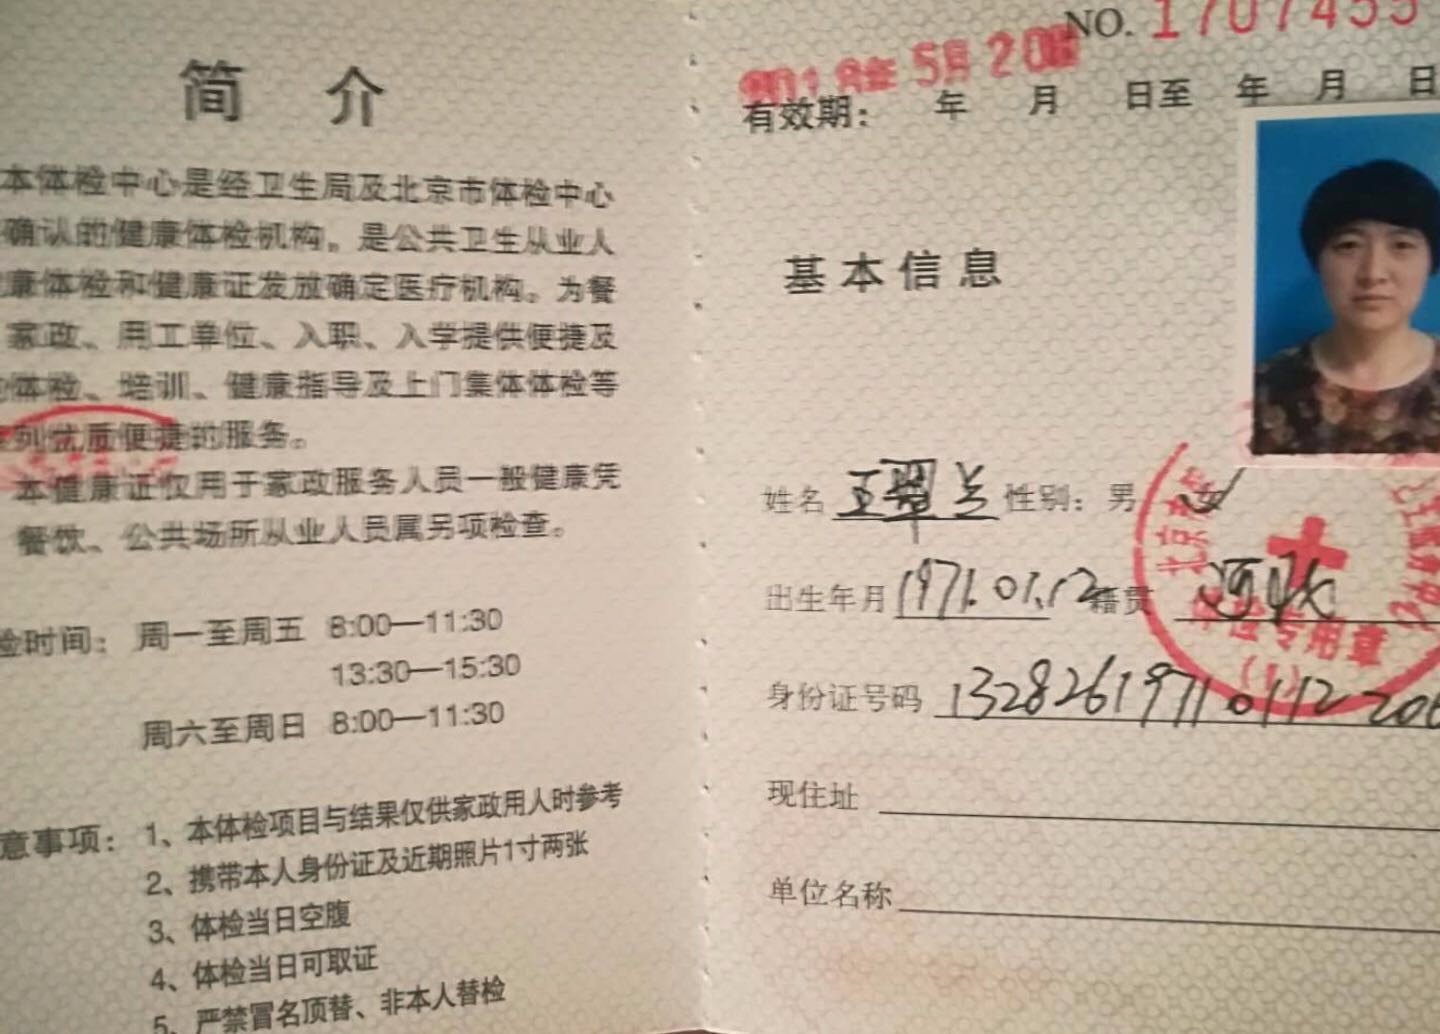 简 介
本体检中心是经卫生局及北京市体检中心
确认的健康体检机构。是公共卫生从业人
康体检和健康证发放确定医疗机构。为餐
家政、用工单位、入职、入学提供便捷及
体检、培训、健康指导及上门集体体检等
列优质便捷的服务。
本健康证仅用于家政服务人员一般健康凭
餐饮、公共场所从业人员属另项检查。
检时间：周一至周五 8:00—11:30
13:30—15:30
周六至周日 8:00—11:30
意事项：1、本体检项目与结果仅供家政用人时参考
2、携带本人身份证及近期照片1寸两张
3、体检当日空腹
4、体检当日可取证
5、严禁冒名顶替、非本人替检
NO. 1707455
5月20
有效期： 年 月 日至 年 月 日
基本信息
姓名 王翠兰 性别：男 女
出生年月 1971.01.12 籍贯
身份证号码 132826197101122206
现住址
单位名称
北京
体检专用章
(1)